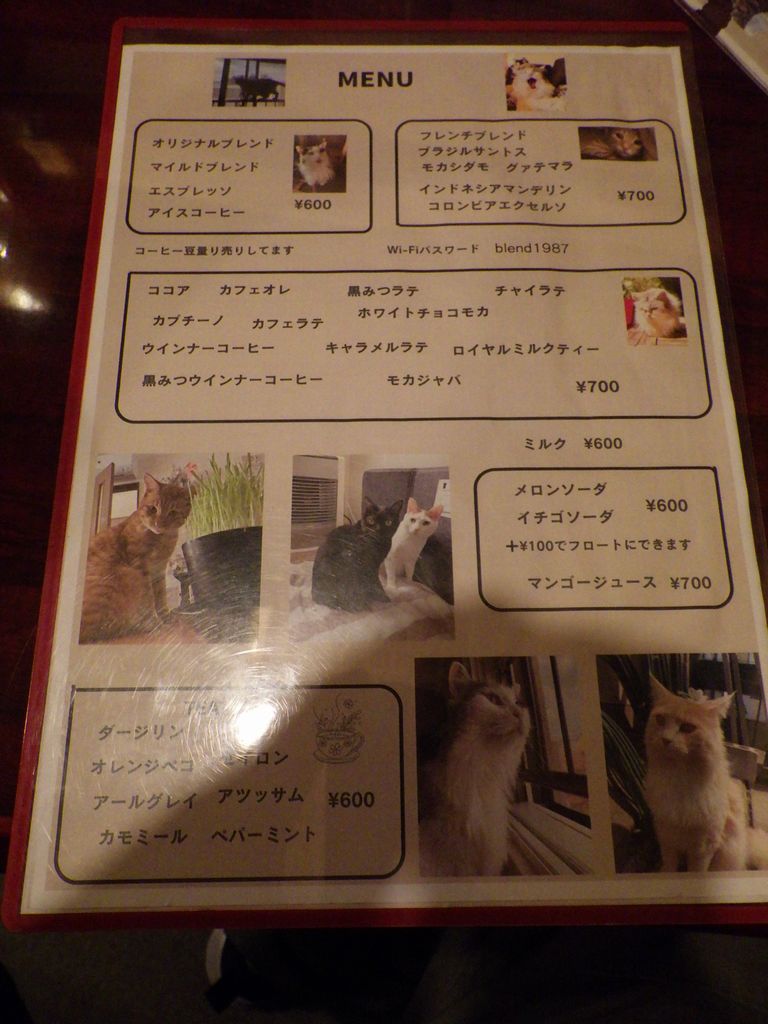 MENU
オリジナルブレンド
マイルドブレンド
エスプレッソ
アイスコーヒー
¥600
フレンチブレンド
ブラジルサントス
モカシダモ グァテマラ
インドネシアマンデリン
コロンビアエクセルソ
¥700
コーヒー豆量り売りしてます
Wi-Fiパスワード blend1987
ココア カフェオレ 黒みつラテ チャイラテ
カプチーノ カフェラテ ホワイトチョコモカ
ウインナーコーヒー キャラメルラテ ロイヤルミルクティー
黒みつウインナーコーヒー モカジャバ ¥700
ミルク ¥600
メロンソーダ
イチゴソーダ
¥600
+¥100でフロートにできます
マンゴージュース ¥700
TEA
ダージリン
オレンジペコ セイロン
アールグレイ アツッサム ¥600
カモミール ペパーミント